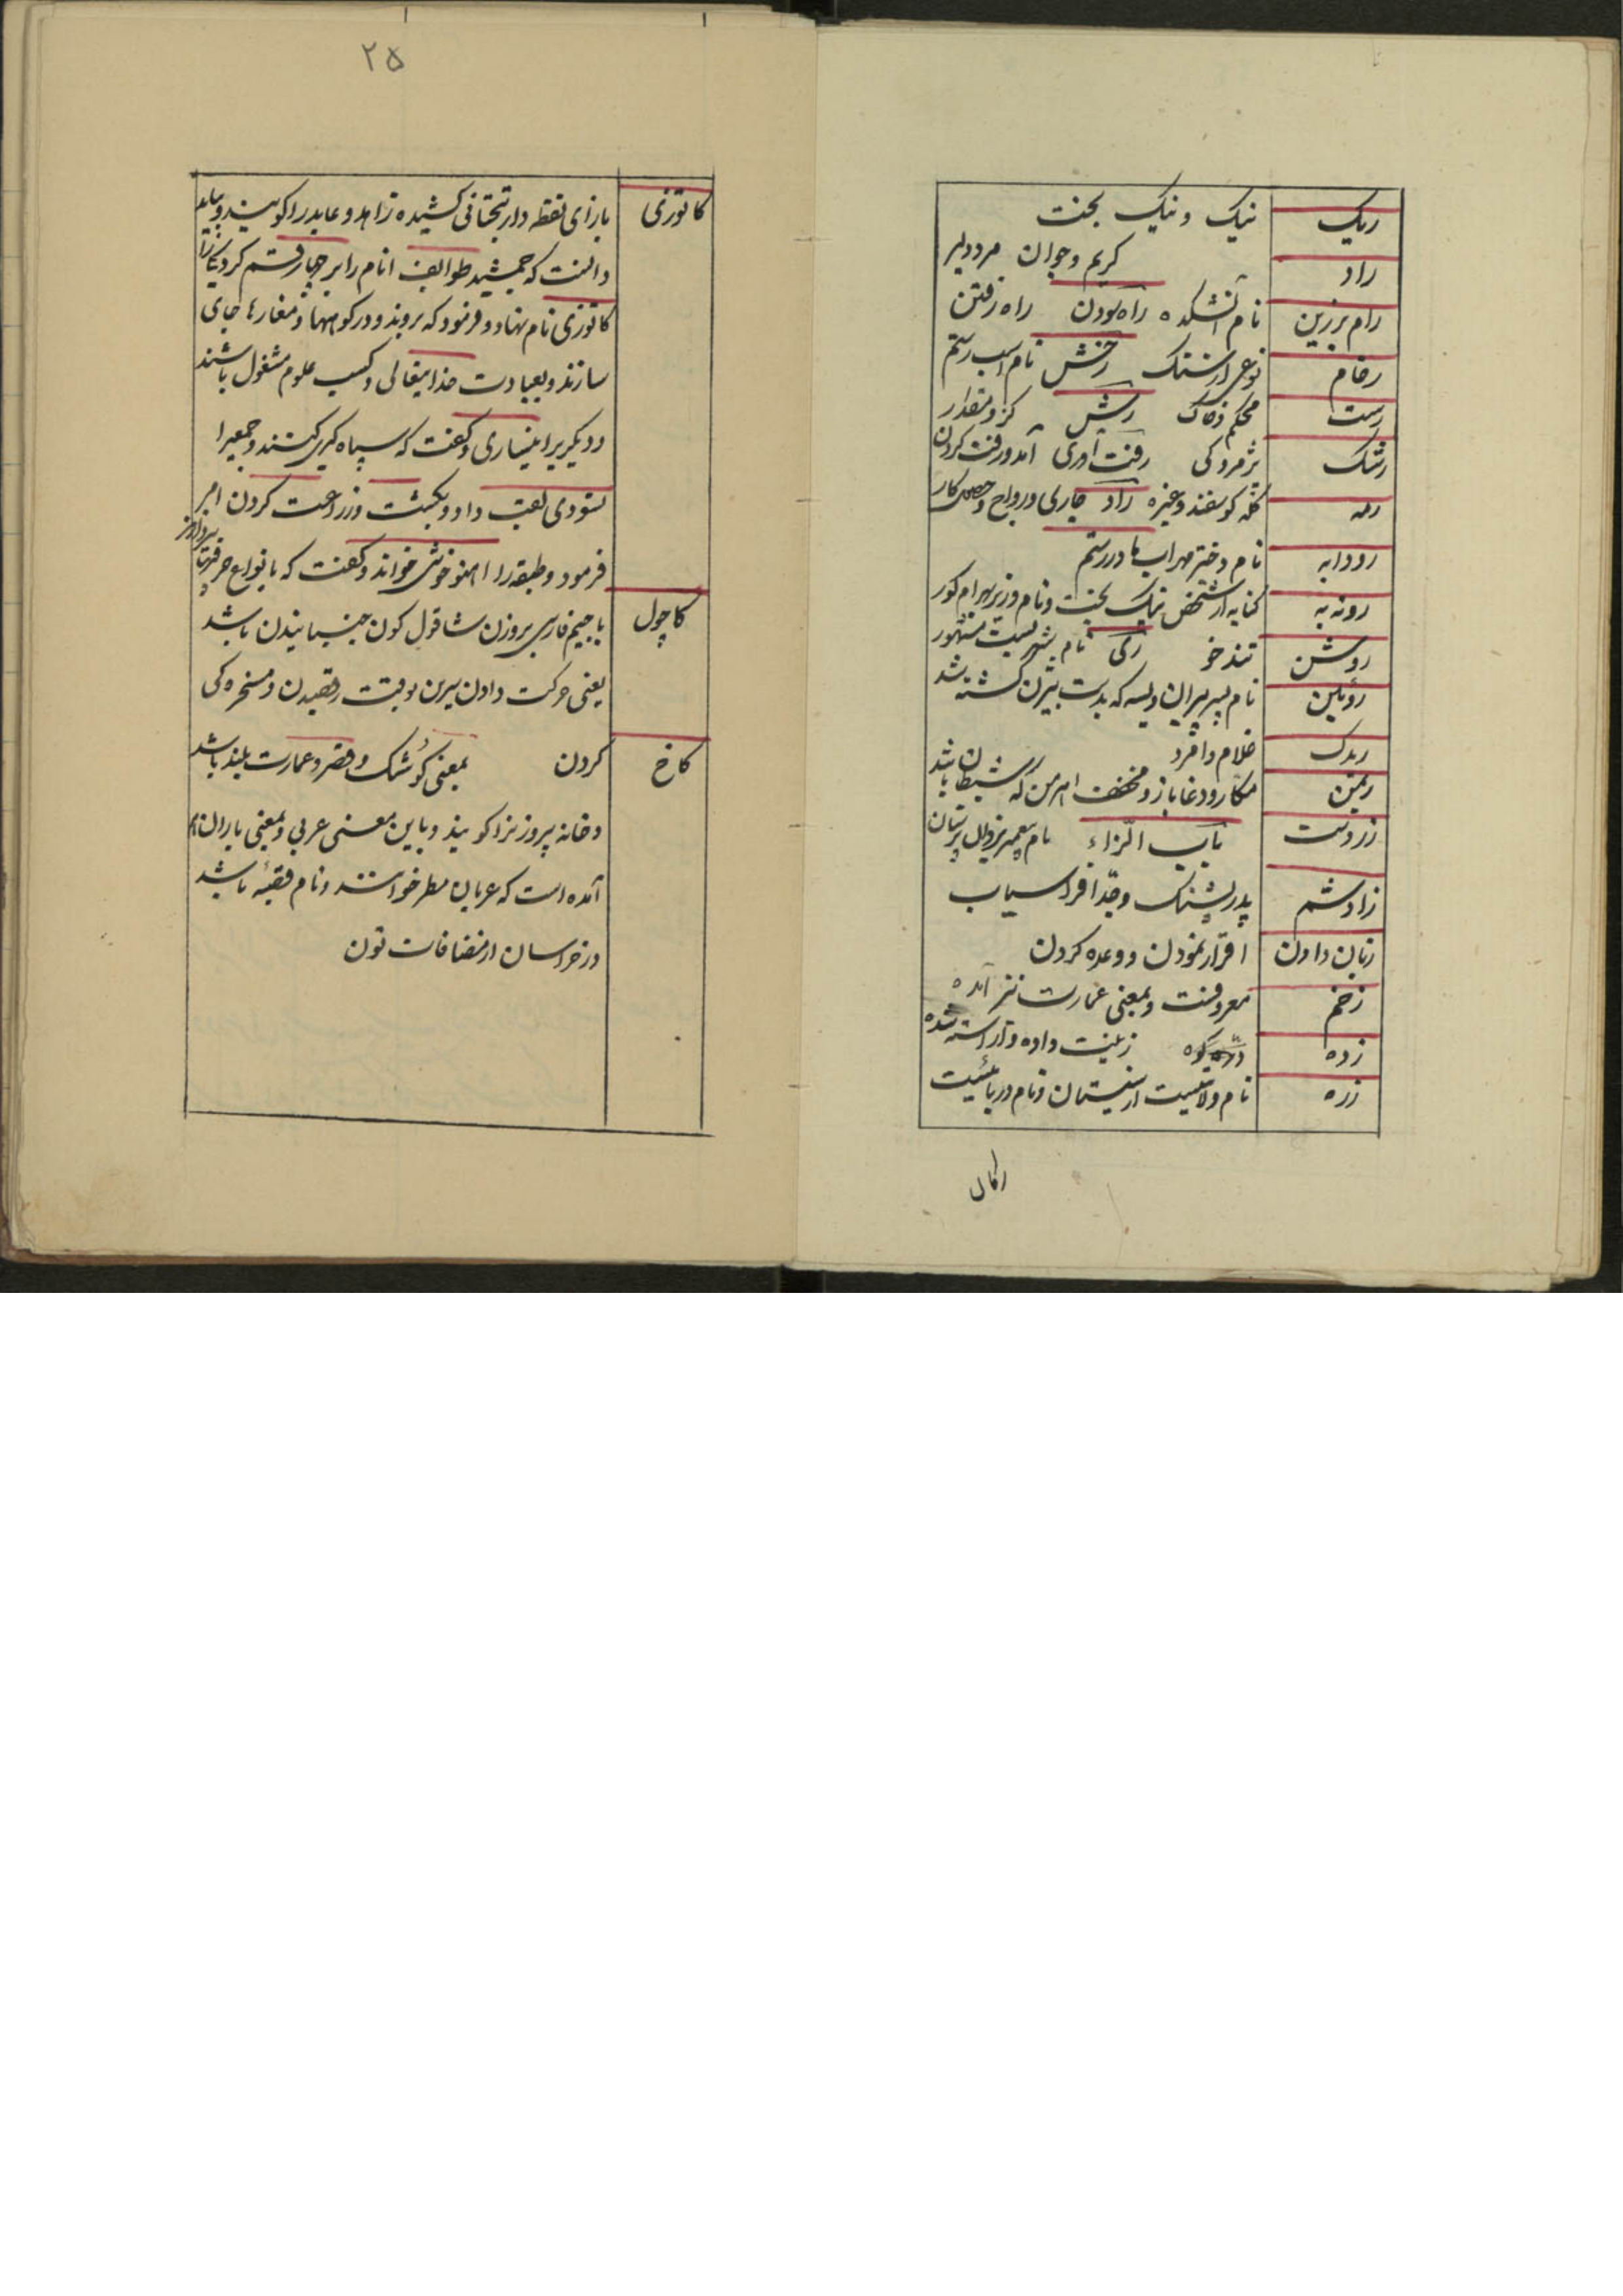 ریک نیک و نیک بخت
راد کریم و جوان مرد دلیر
رام برزین نام آتشکده راه‌سودن راه رفتن
رخام نوعی از سنک رخش نام اسب رستم
رست محکم و خاک رش کز و مقدار
رشک پژمردکی رفت آوری آمد و رفت کردن
رمه کله کوسفند و غیره راد جاری و رواج و
رودابه نام دختر مهراب مادر رستم
روزبه کنایه از شخص نیک بخت و نام وزیر بهرام کور
روشن تندخو ری نام شهریست مشهور
روئین نام پسر پیران ویسه که بدست بیژن کشته شد
ریدک غلام و امرد
ریمن مکار و دغاباز و مخفف اهرمن که شیطان باشد
زردست باب الزاء نام
زادشم پدر پشنک و جد افراسیاب
زبان دادن اقرار نمودن و وعده کردن
زخم معروفست و بمعنی عمارت نیز آمده
زده زینت داده و آراسته شده
زره نام ولایتیست از سیستان و نام دریائیست
۲۵
کاتوزی بازای نقطه دار بتحتانی کشیده زاهد و عابد را کویند و بباید
دانست که جمشید طوایف انام را بر چهار قسم کرد یکی را
کاتوزی نام نهاد و فرمود که بروند و در کوهها و مغارها جای
سازند و بعبادت خدایتعالی و کسب علوم مشغول باشند
و دیکریرا نیساری و کفت که سپاه کیری کنند و جمعیرا
نسودی لقب داد و بکشت و زراعت کردن امر
فرمود و طبقه را اهنوخوشی خواند و کفت که بانواع حرفتها پردازند
کاچول با جیم فارسی بروزن شاقول کون جنبانیدن باشد
یعنی حرکت دادن سرین بوقت رقصیدن و مسخره کی
کاخ کردن بمعنی کوشک و قصر و عمارت بلند باشد
و خانه پیروزنرا کویند و باین معنی عربی و بمعنی باران هم
آمده است که عربان مطر خوانند و نام قصبهٔ باشد
در خراسان از مضافات تون